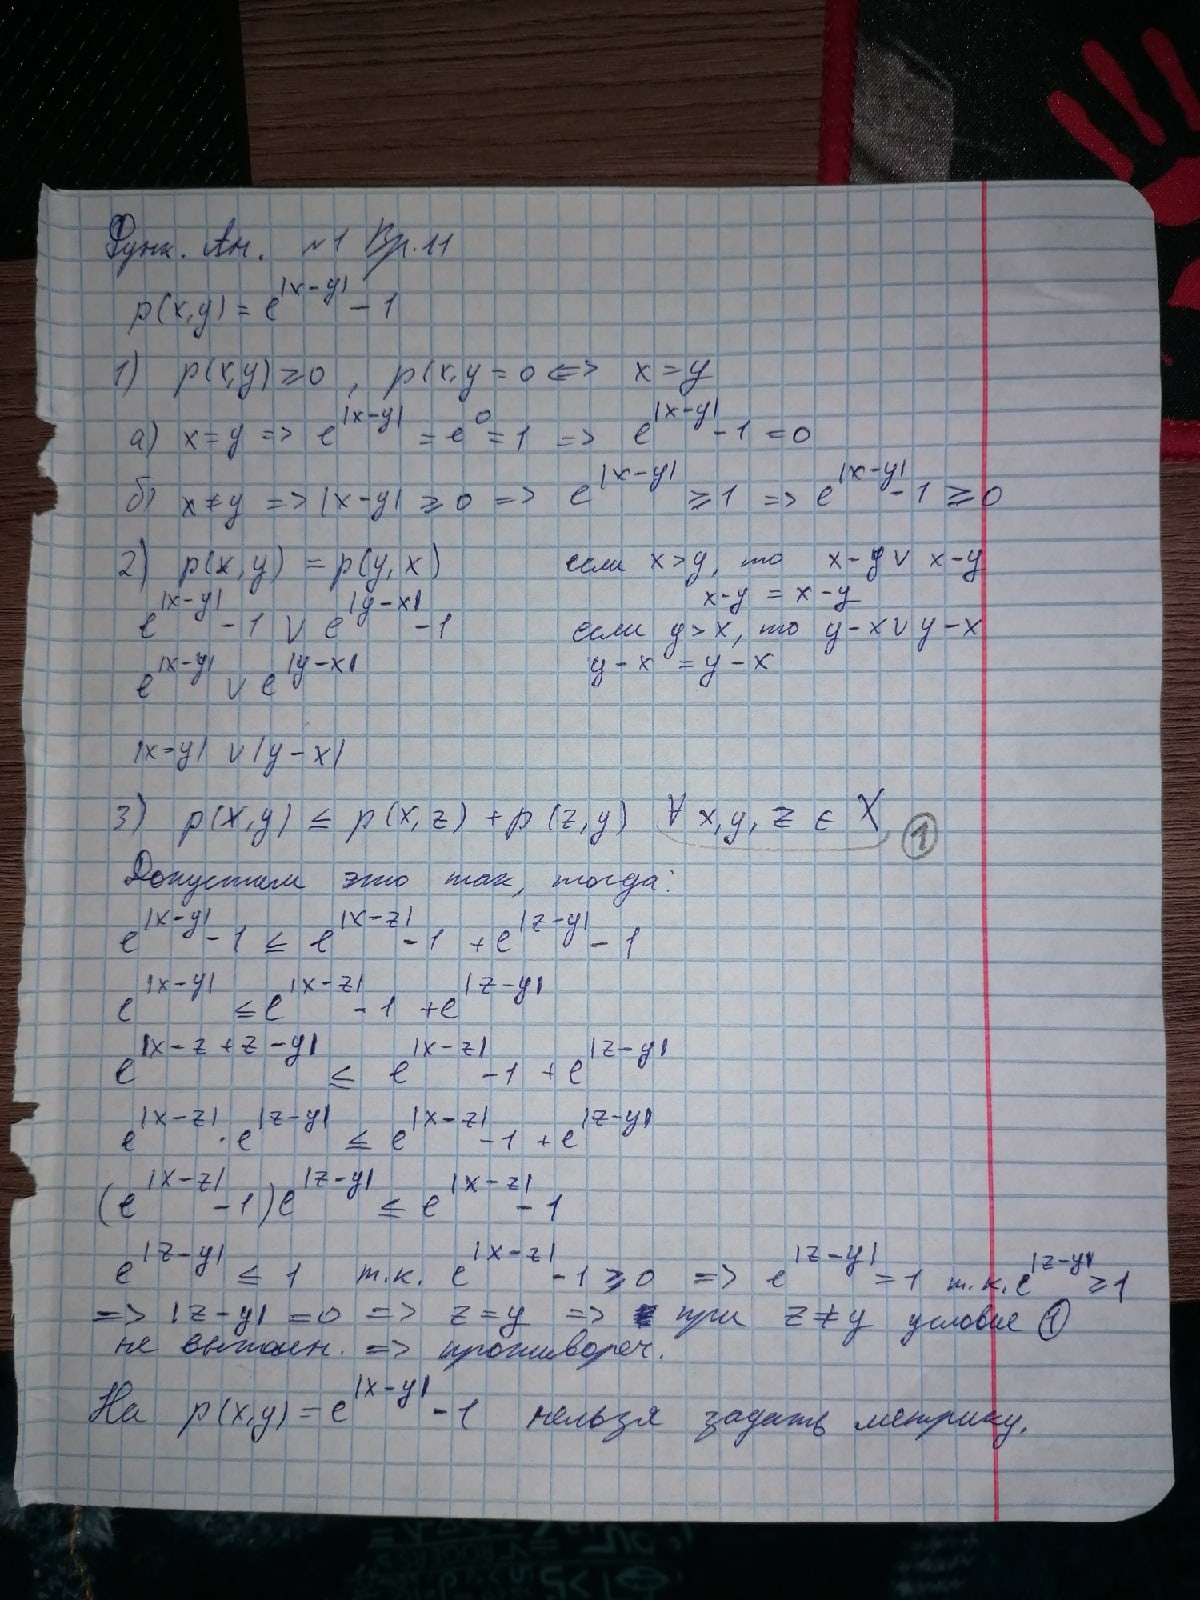 Функ. Ан. №1 Вр.11
p(x,y) = e^|x-y| - 1
1) p(x,y) ≥ 0, p(x,y = 0 <=> x = y
а) x = y => e^|x-y| = e^0 = 1 => e^|x-y| - 1 = 0
б) x ≠ y => |x-y| ≥ 0 => e^|x-y| ≥ 1 => e^|x-y| - 1 ≥ 0
2) p(x,y) = p(y,x) если x > y, то x-y ∨ x-y
x-y = x-y
e^|x-y| - 1 ∨ e^|y-x| - 1 если y > x, то y-x ∨ y-x
e^|x-y| ∨ e^|y-x| y-x = y-x
|x-y| ∨ |y-x|
3) p(x,y) ≤ p(x,z) + p(z,y) ∀ x,y,z ∈ X ①
Допустим это так, тогда:
e^|x-y| - 1 ≤ e^|x-z| - 1 + e^|z-y| - 1
e^|x-y| ≤ e^|x-z| - 1 + e^|z-y|
e^|x-z+z-y| ≤ e^|x-z| - 1 + e^|z-y|
e^|x-z| · e^|z-y| ≤ e^|x-z| - 1 + e^|z-y|
(e^|x-z| - 1) e^|z-y| ≤ e^|x-z| - 1
e^|z-y| ≤ 1 т.к. e^|x-z| - 1 ≥ 0 => e^|z-y| = 1 т.к. e^|z-y| ≥ 1
=> |z-y| = 0 => z = y => при z ≠ y условие ①
не выполн. => противореч.
На p(x,y) = e^|x-y| - 1 нельзя задать метрику.